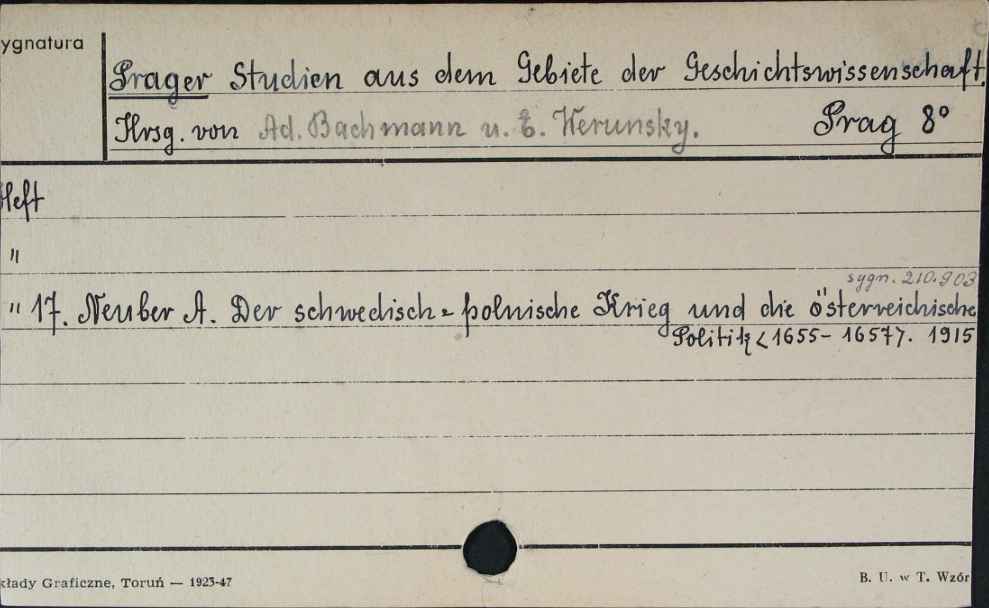 ygnatura
Prager Studien aus dem Gebiete der Geschichtswissenschaft
Hrsg. von Ad. Bachmann u. E. Werunsky. Prag 8°
Heft
"
sygn. 210.903
" 17. Neuber A. Der schwedisch=polnische Krieg und die österreichische
Politik <1655-1657>. 1915
kłady Graficzne, Toruń — 1923-47
B. U. w T. Wzór